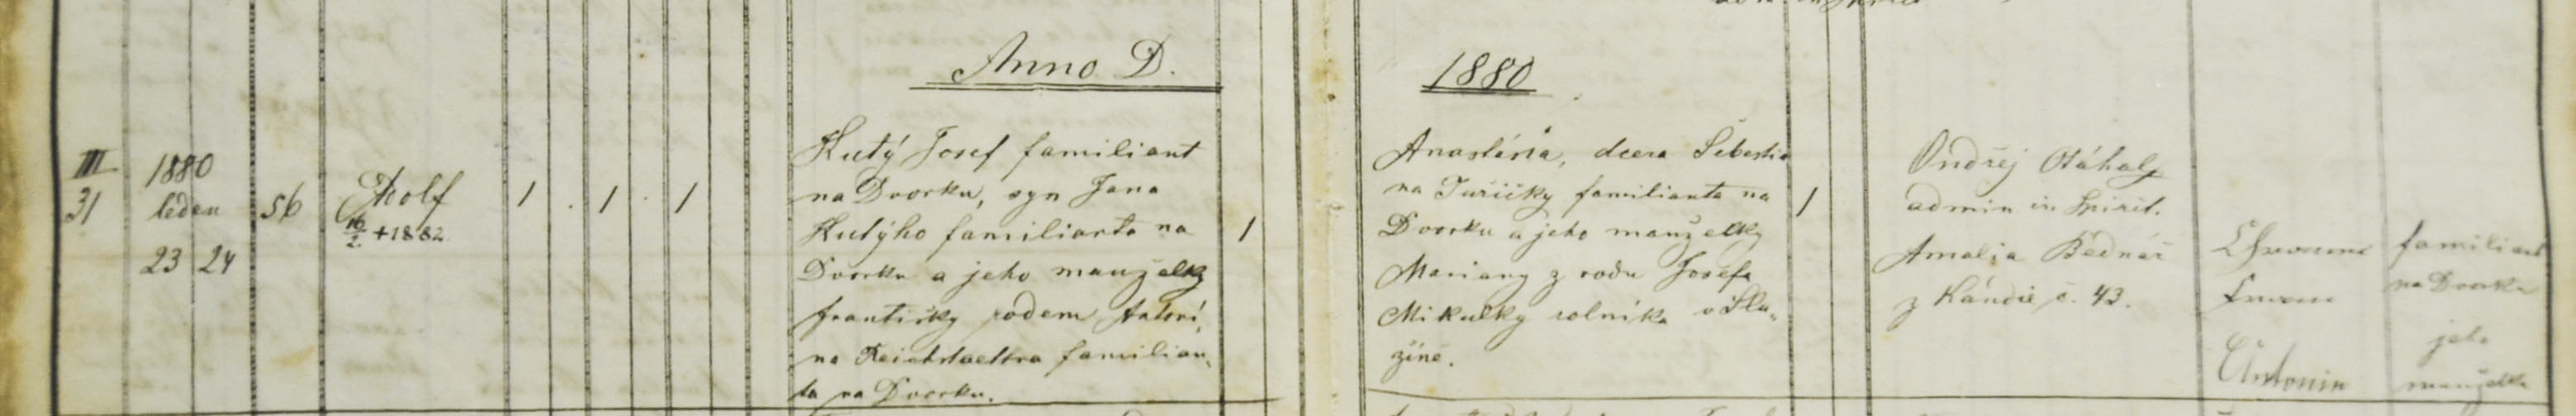 Anno D. 1880
III
31
1880
leden
23 24
56
Adolf
16/2 +1882
1 1 1
Kutý Josef familiant
na Dvorku, syn Jana
Kutýho familianta na
Dvorku a jeho manželky
Františky rodem Antoní„
na familian„
ta na Dvorku.
1
Anastásia, dcera Šebestia
na Juřičky familianta na
Dvorku a jeho manželky
Mariany z rodu Josefa
Mikulky rolníka v Slu„
žíně.
1
Ondřej Otáhal
admin in Spirit.
Amalia Bednář
z Kandie č. 43.
Antonin
familiant
na Dvorku
jeho
manželka